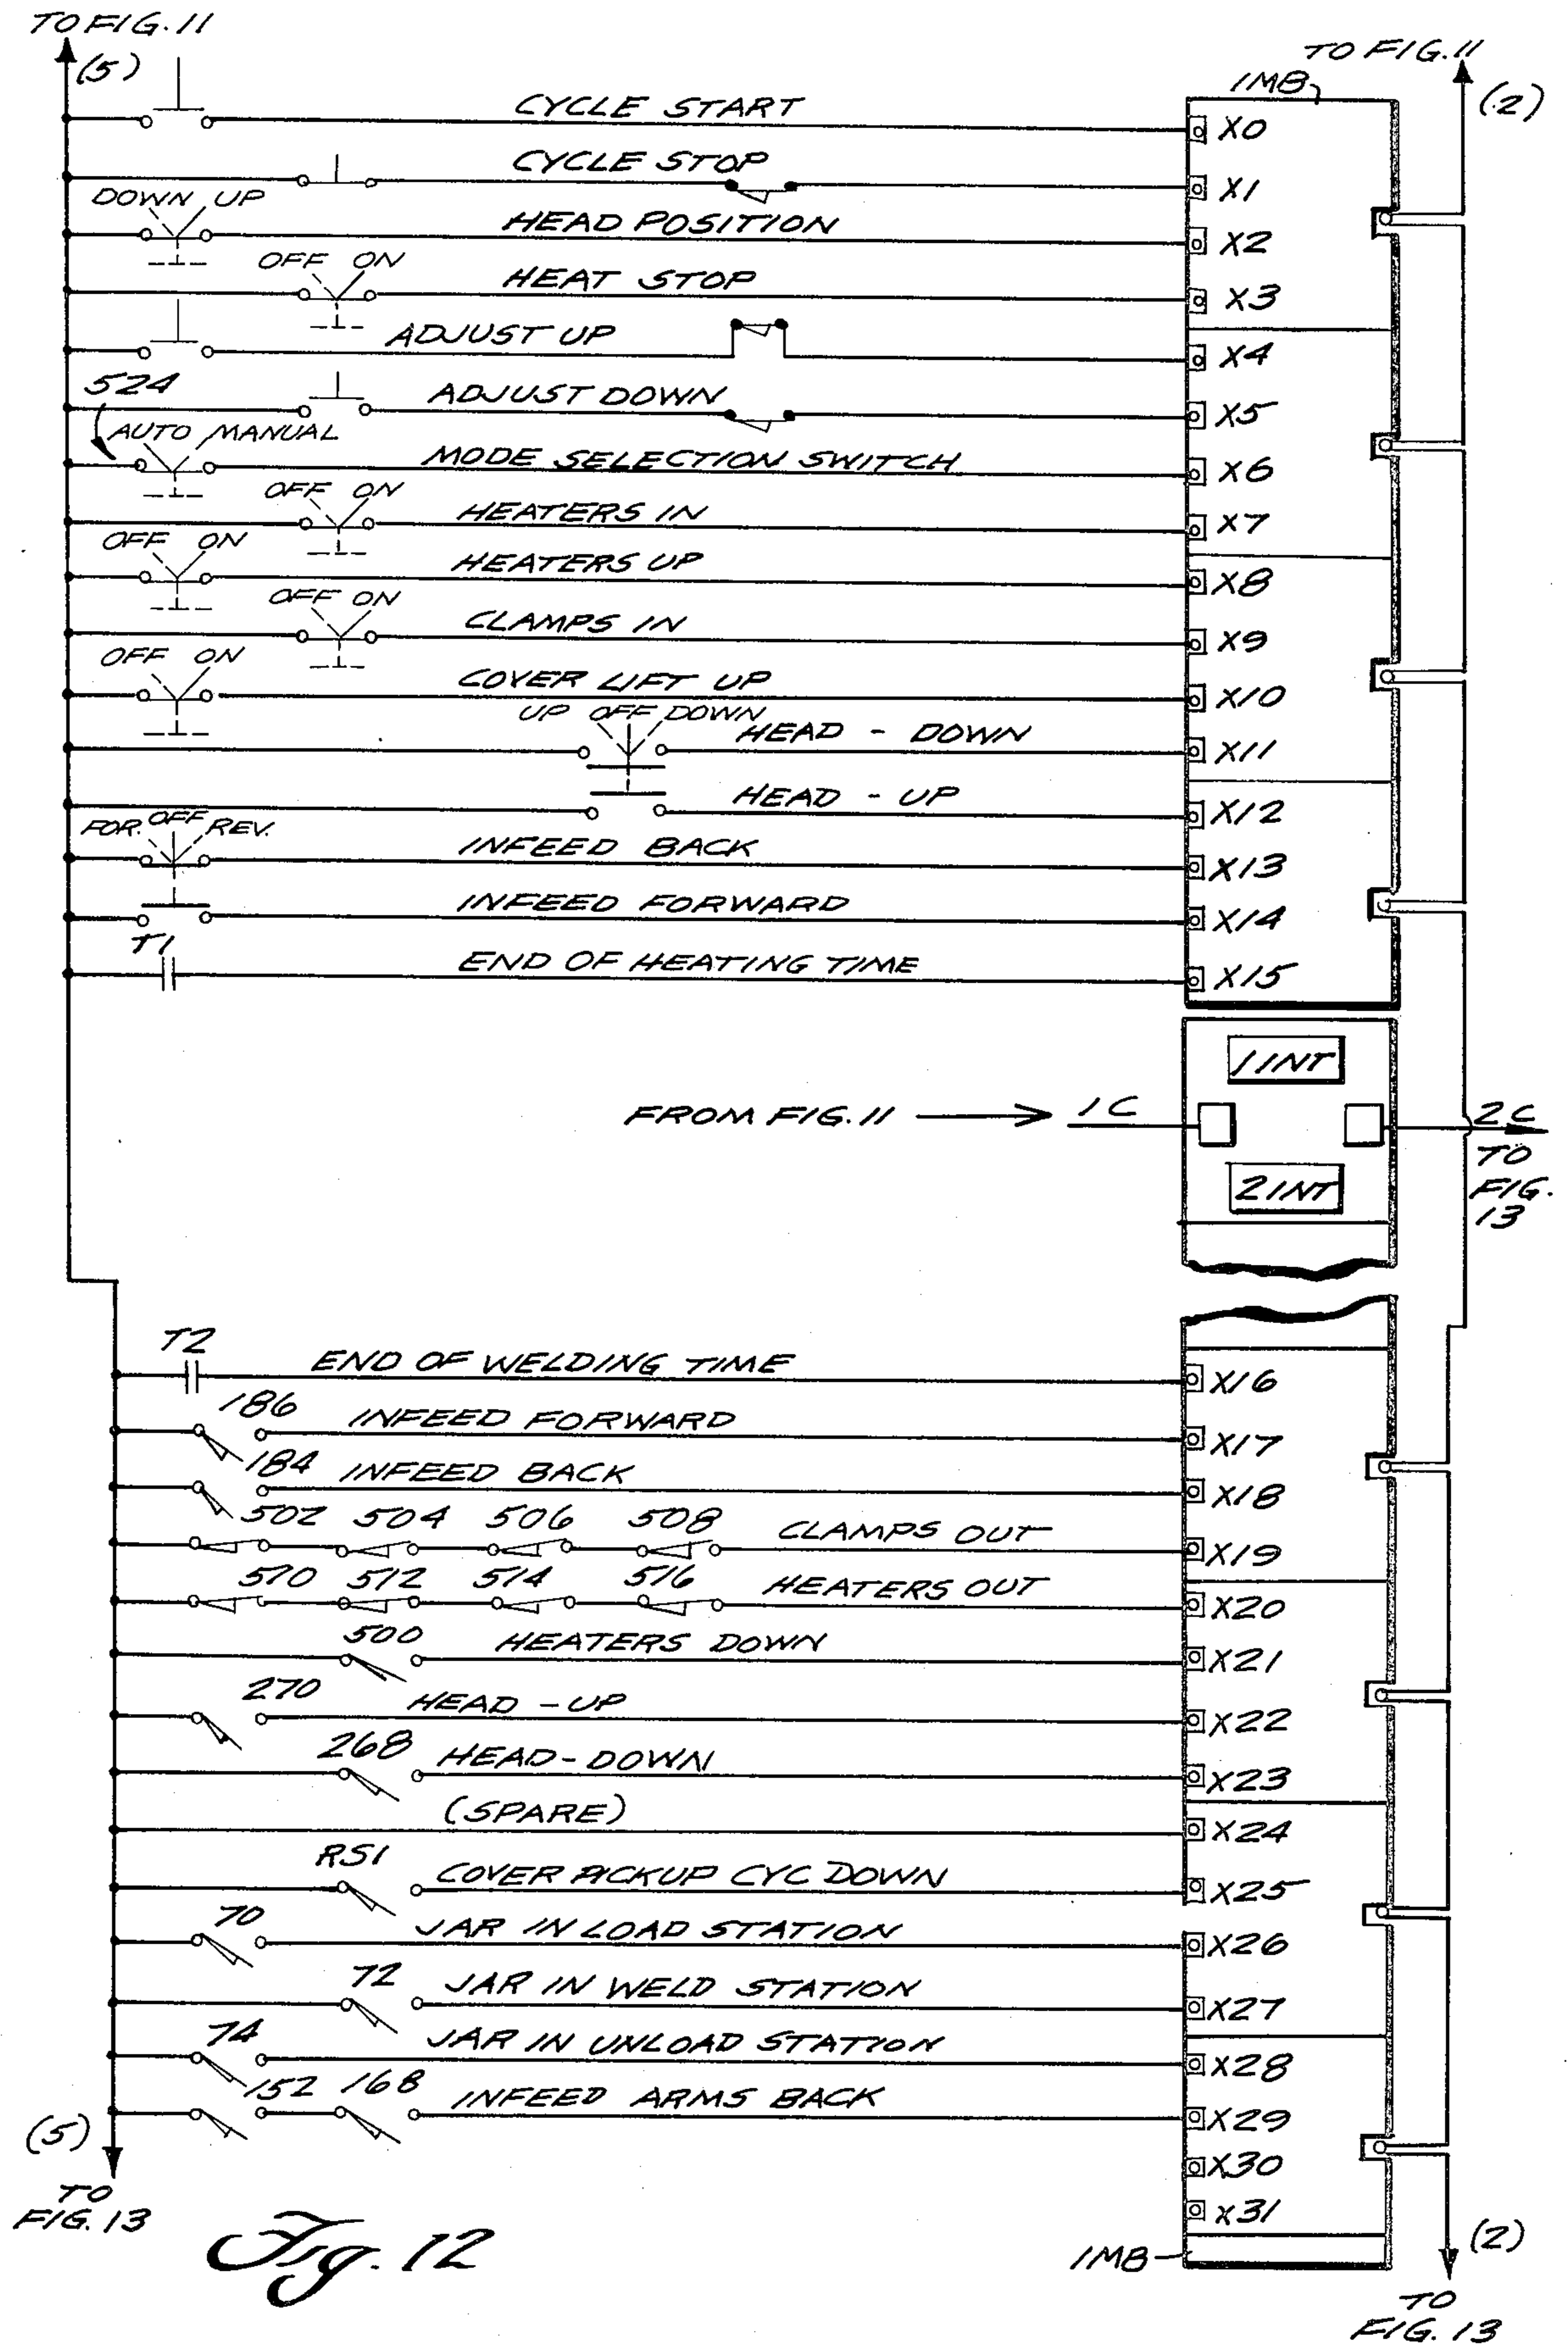 TO FIG. 11
(5)
TO FIG. 11
(2)
1MB
CYCLE START
X0
CYCLE STOP
X1
DOWN UP
HEAD POSITION
X2
OFF ON
HEAT STOP
X3
ADJUST UP
X4
524
ADJUST DOWN
X5
AUTO MANUAL
MODE SELECTION SWITCH
X6
OFF ON
HEATERS IN
X7
OFF ON
HEATERS UP
X8
OFF ON
CLAMPS IN
X9
OFF ON
COVER LIFT UP
X10
UP OFF DOWN
HEAD - DOWN
X11
HEAD - UP
X12
FOR. OFF REV.
INFEED BACK
X13
INFEED FORWARD
X14
T1
END OF HEATING TIME
X15
1INT
FROM FIG. 11
1C
2C
TO
FIG.
13
2INT
T2
END OF WELDING TIME
X16
186
INFEED FORWARD
X17
184
INFEED BACK
X18
502 504 506 508
CLAMPS OUT
X19
510 512 514 516
HEATERS OUT
X20
500
HEATERS DOWN
X21
270
HEAD - UP
X22
268
HEAD - DOWN
X23
(SPARE)
X24
RS1
COVER PICKUP CYC DOWN
X25
70
JAR IN LOAD STATION
X26
72
JAR IN WELD STATION
X27
74
JAR IN UNLOAD STATION
X28
152 168
INFEED ARMS BACK
X29
X30
X31
(5)
TO
FIG. 13
Fig. 12
1MB
(2)
TO
FIG. 13